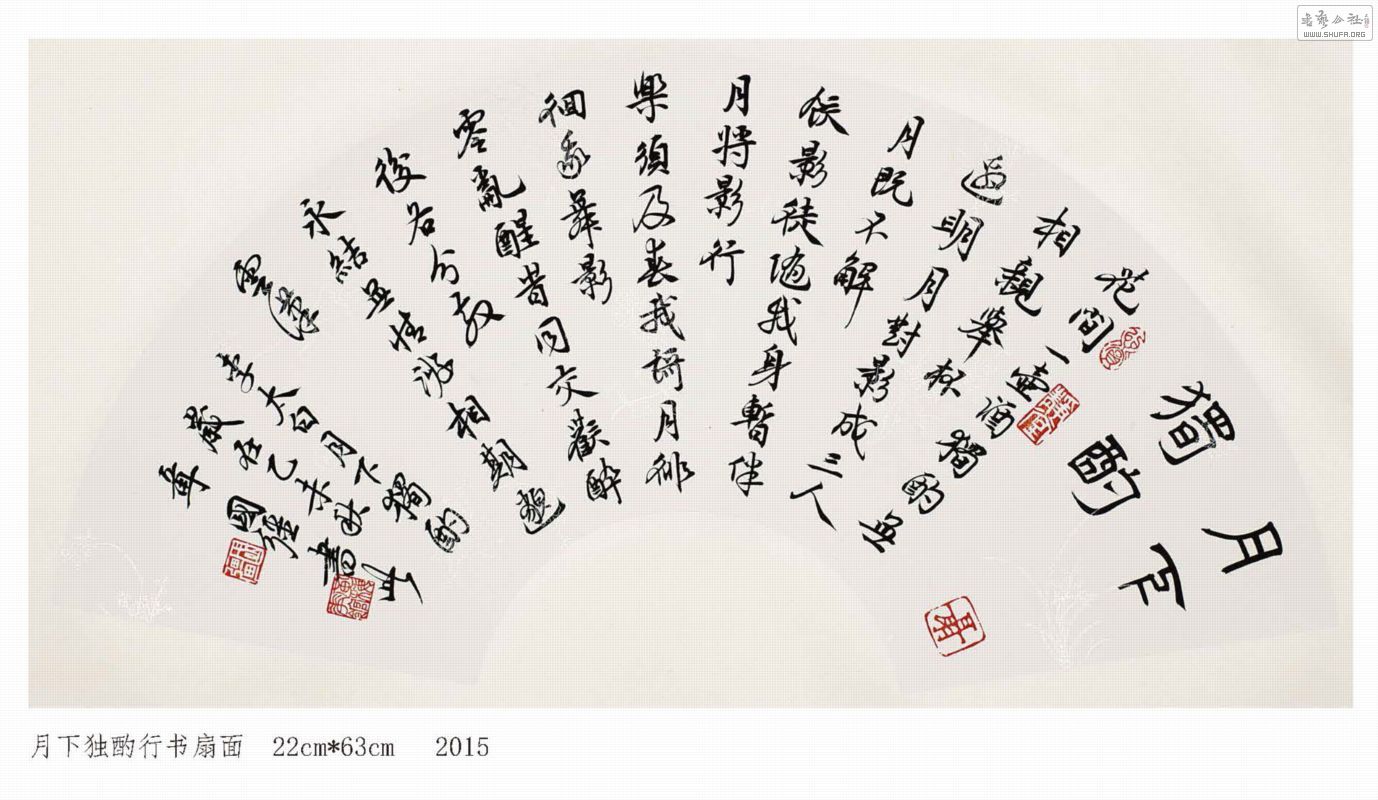 書藝公社
WWW.SHUFA.ORG
月下
獨酌
花間一壺酒獨酌無
相親舉杯
邀明月對影成三人
月既不解
飲影徒隨我身暫伴
月將影行
樂須及春我歌月徘
徊我舞影
零亂醒時同交歡醉
後各分散
永結無情游相期邈
雲漢
李太白月下獨酌
歲在乙未秋書
國
月下独酌行书扇面 22cm*63cm 2015